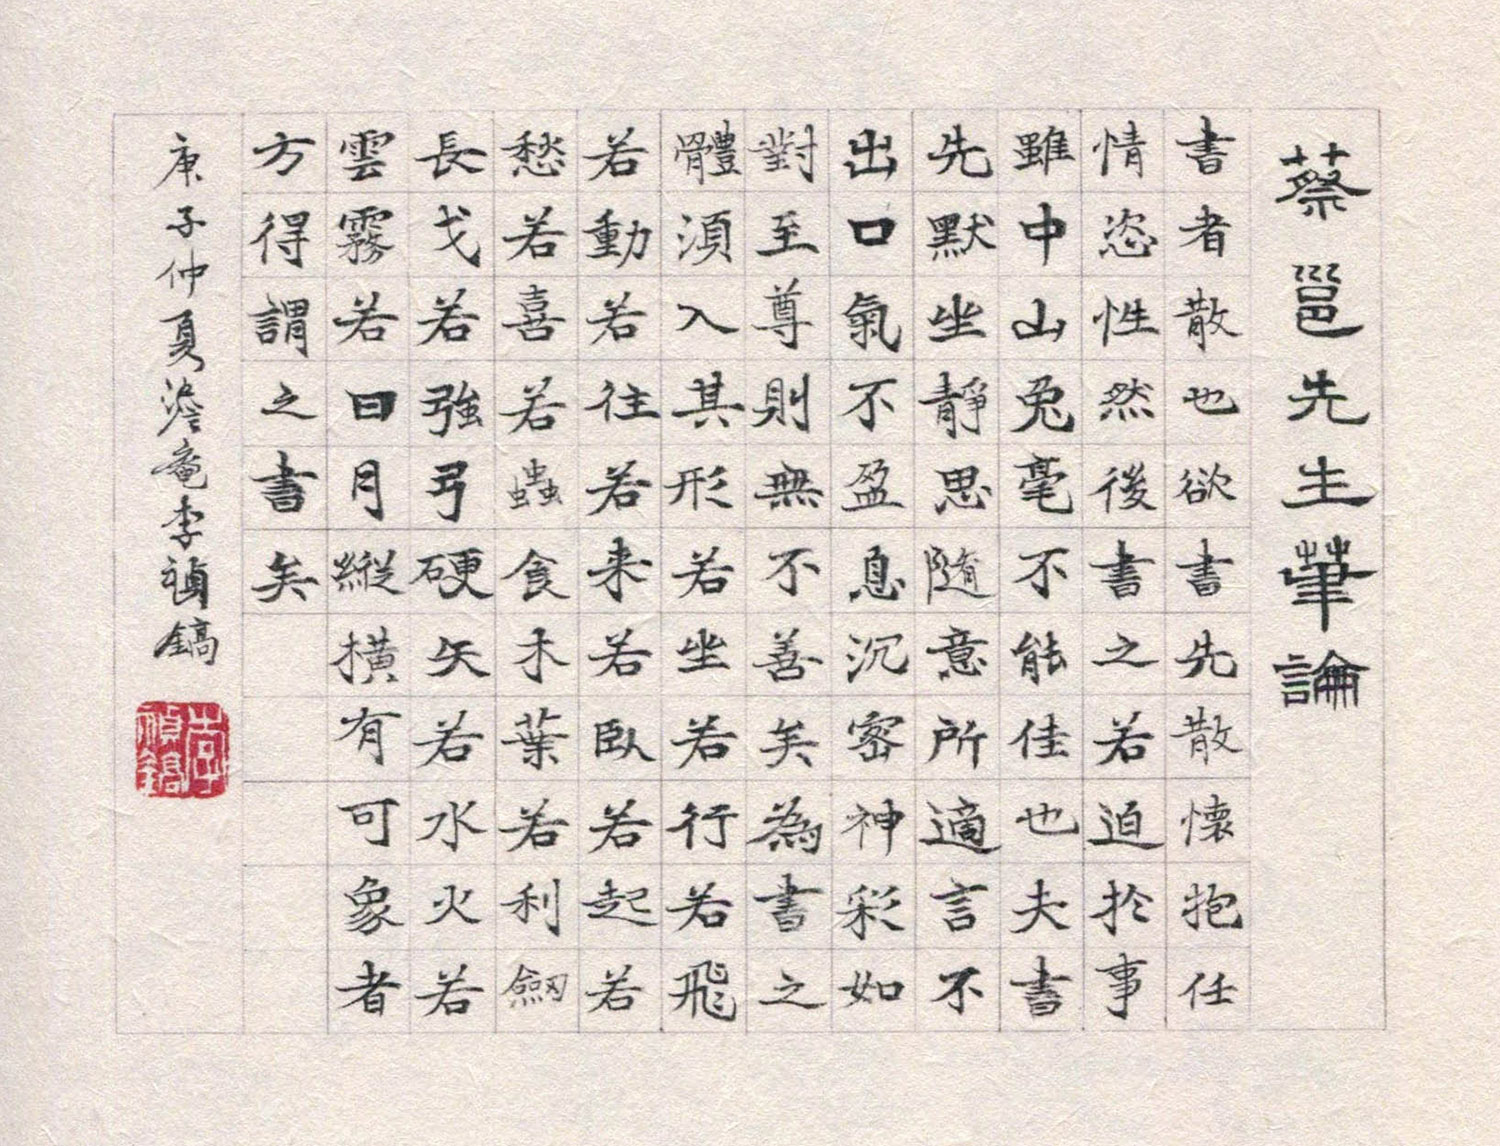 蔡邕先生筆論
書者散也欲書先散懷抱任
情恣性然後書之若迫於事
雖中山兔毫不能佳也夫書
先默坐靜思隨意所適言不
出口氣不盈息沉密神彩如
對至尊則無不善矣為書之
體須入其形若坐若行若飛
若動若往若来若臥若起若
愁若喜若蟲食木葉若利劔
長戈若強弓硬矢若水火若
雲霧若日月縱橫有可象者
方得謂之書矣
庚子仲夏澹菴李禎鎬
李禎鎬